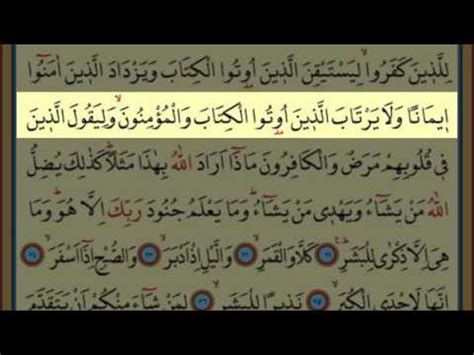 لِلَّذِينَ كَفَرُواۙ لِيَسْتَيْقِنَ الَّذِينَ اُوتُوا الْكِتَابَ وَيَزْدَادَ الَّذِينَ اٰمَنُٓوا
اِيمَانًا وَلَا يَرْتَابَ الَّذِينَ اُوتُوا الْكِتَابَ وَالْمُؤْمِنُونَۙ وَلِيَقُولَ الَّذِينَ
فِي قُلُوبِهِمْ مَرَضٌ وَالْكَافِرُونَ مَاذَٓا اَرَادَ اللّٰهُ بِهٰذَا مَثَلًاۜ كَذٰلِكَ يُضِلُّ
اللّٰهُ مَنْ يَشَٓاءُ وَيَهْدِي مَنْ يَشَٓاءُۜ وَمَا يَعْلَمُ جُنُودَ رَبِّكَ اِلَّا هُوَۜ وَمَا
هِيَ اِلَّا ذِكْرٰى لِلْبَشَرِ۟ ﴿٣١﴾ كَلَّا وَالْقَمَرِۙ ﴿٣٢﴾ وَالَّيْلِ اِذْ اَدْبَرَۙ ﴿٣٣﴾ وَالصُّبْحِ اِذَٓا اَسْفَرَۙ ﴿٣٤﴾
اِنَّهَا لَاِحْدَى الْكُبَرِۙ ﴿٣٥﴾ نَذِيرًا لِلْبَشَرِۙ ﴿٣٦﴾ لِمَنْ شَٓاءَ مِنْكُمْ اَنْ يَتَقَدَّمَ